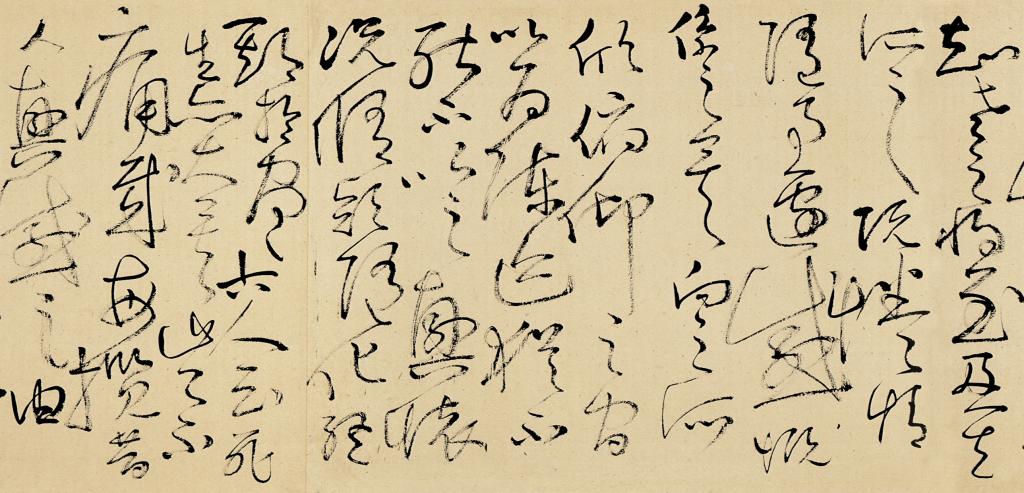 知老之將至及其
所之既惓情
隨事遷感慨
係之矣向之所
欣俯仰之間
以為陳迹猶不
能不以之興懷
況脩短隨化終
期於盡古人云死
生亦大矣豈不
痛哉每攬昔
人興感之由